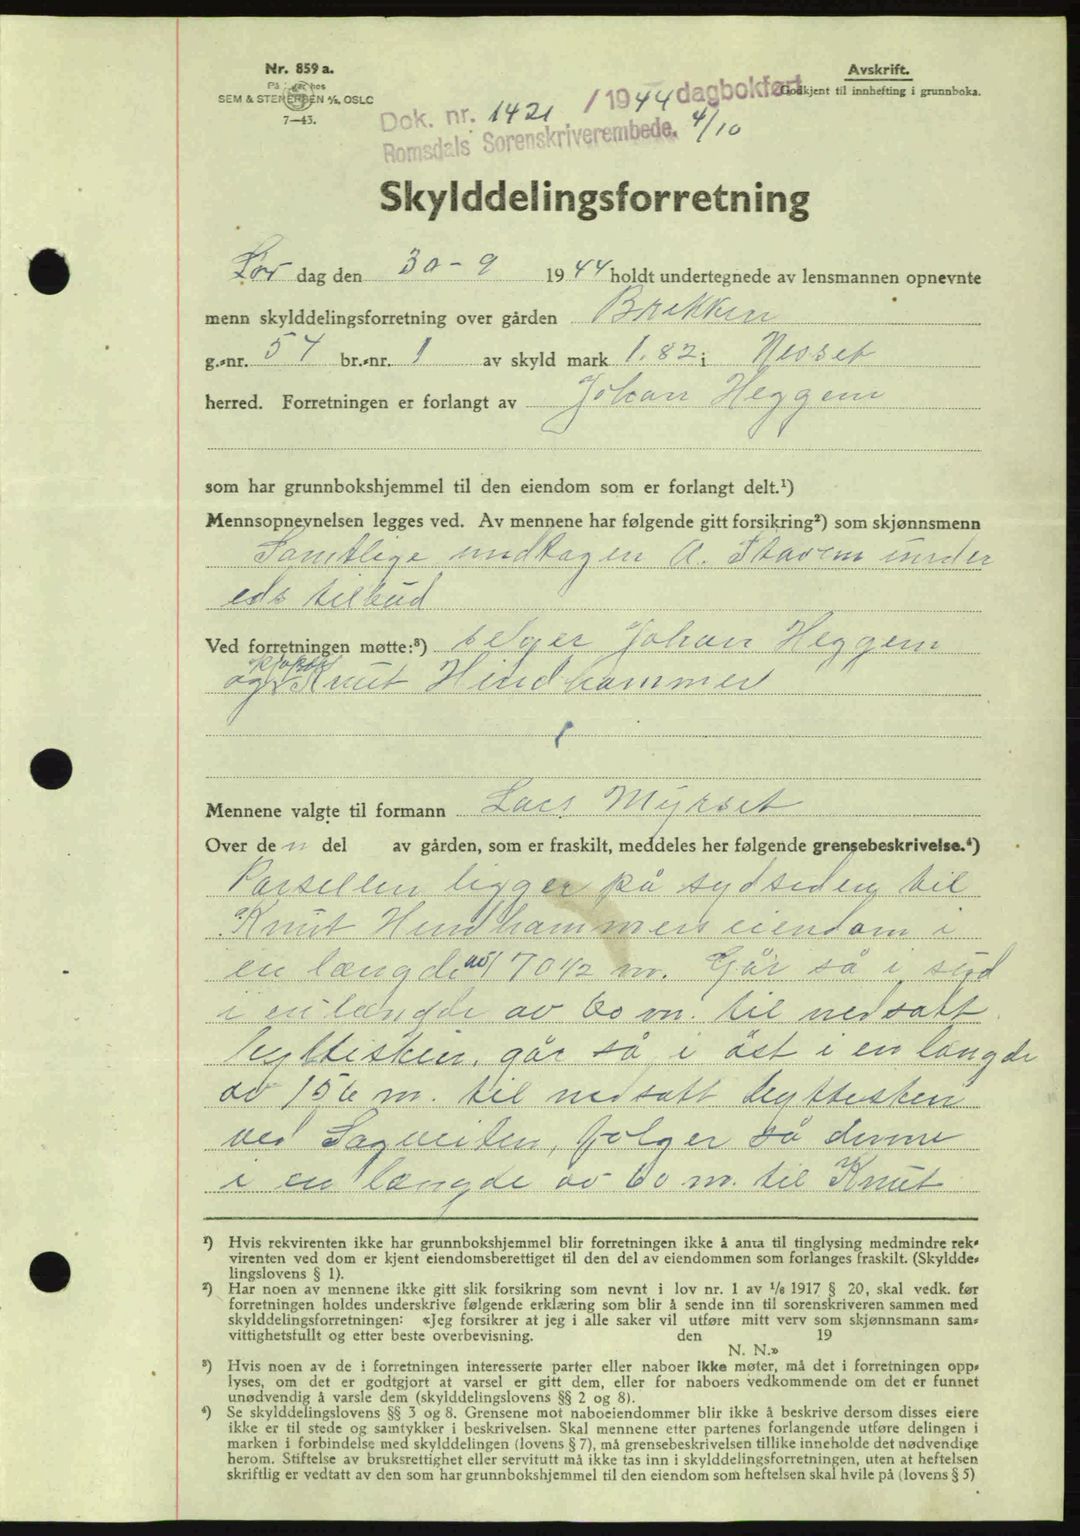 Nr. 859 a.
På lager hos
SEM & STENERSEN A/S, OSLO
7—43.
Avskrift.
Godkjent til innhefting i grunnboka.
Dok. nr. 1421 / 1944 dagbokført 4/10
Romsdals Sorenskriverembede.
Skylddelingsforretning
Lør dag den 30-9 1944 holdt undertegnede av lensmannen opnevnte
menn skylddelingsforretning over gården Brekken
g.-nr. 54 br.-nr. 1 av skyld mark 1.82 i Nesset
herred. Forretningen er forlangt av Johan Heggem
som har grunnbokshjemmel til den eiendom som er forlangt delt.¹)
Mennsopnevnelsen legges ved. Av mennene har følgende gitt forsikring²) som skjønnsmenn
Samtlige undtagen A. Stavem under
eds tilbud
Ved forretningen møtte:³) selger Johan Heggem
og kjøper Knut Hindhammer
Mennene valgte til formann Lars Myrset
Over de n del av gården, som er fraskilt, meddeles her følgende grensebeskrivelse.⁴)
Parsellen ligger på sydsiden til
Knut Hindhammers eiendom i
en længde av 170 1/2 m. Går så i syd
i en længde av 60 m. til nedsatt
byttestein, går så i øst i en længde
av 156 m. til nedsatt byttesten
ved Sagveiten, følger så denne
i en længde av 60 m. til Knut
¹) Hvis rekvirenten ikke har grunnbokshjemmel blir forretningen ikke å anta til tinglysing medmindre rek-
virenten ved dom er kjent eiendomsberettiget til den del av eiendommen som forlanges fraskilt. (Skyldde-
lingslovens § 1).
²) Har noen av mennene ikke gitt slik forsikring som nevnt i lov nr. 1 av 1/6 1917 § 20, skal vedk. før
forretningen holdes underskrive følgende erklæring som blir å sende inn til sorenskriveren sammen med
skylddelingsforretningen: «Jeg forsikrer at jeg i alle saker vil utføre mitt verv som skjønnsmann sam-
vittighetsfullt og etter beste overbevisning. den 19
N. N.»
³) Hvis noen av de i forretningen interesserte parter eller naboer ikke møter, må det i forretningen opp-
lyses, om det er godtgjort at varsel er gitt dem, eller for naboers vedkommende om det er funnet
unødvendig å varsle dem (skylddelingslovens §§ 2 og 8).
⁴) Se skylddelingslovens §§ 3 og 8. Grensene mot naboeiendommer blir ikke å beskrive dersom disses eiere
ikke er til stede og samtykker i beskrivelsen. Skal mennene etter partenes forlangende utføre delingen i
marken i forbindelse med skylddelingen (lovens § 7), må grensebeskrivelsen tillike inneholde det nødvendige
herom. Stiftelse av bruksrettighet eller servitutt må ikke tas inn i skylddelingsforretningen, uten at heftelsen
skriftlig er vedtatt av den som har grunnbokshjemmel til den eiendom som heftelsen skal hvile på (lovens § 5)